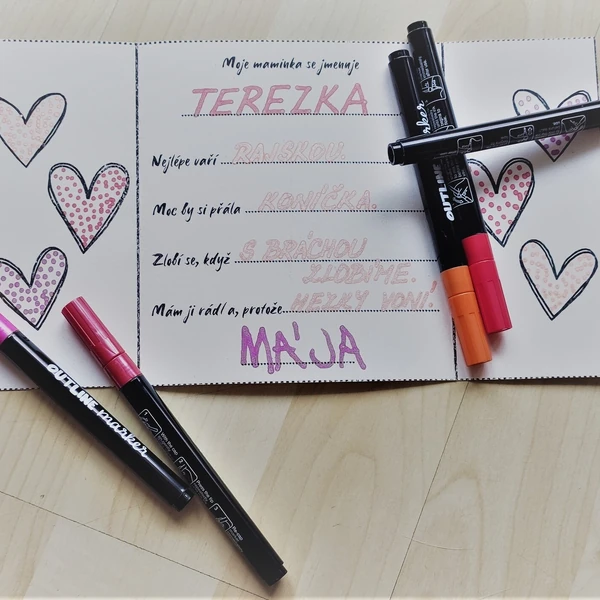 Moje maminka se jmenuje
TEREZKA
Nejlépe vaří RAJSKOU.
Moc by si přála KONÍČKA.
Zlobí se, když S BRÁCHOU
ZLOBÍME.
Mám ji rád/a, protože HEZKY VONÍ!
MÁJA
OUTLINE marker
OUTLINE
arker